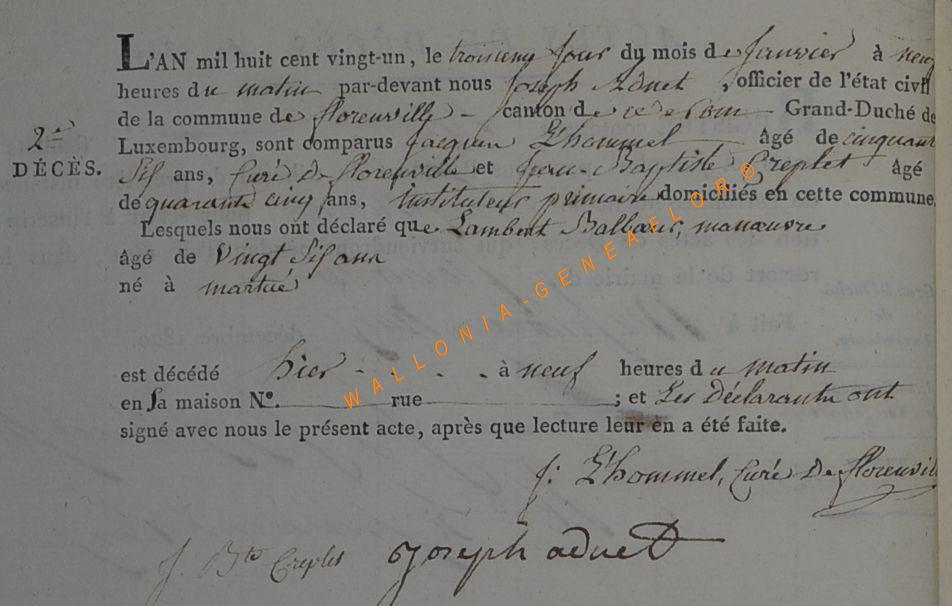 L'AN mil huit cent vingt-un, le troisieme Jour du mois de Janvier à neuf
heures du matin par-devant nous Joseph Adnet, officier de l'état civil
de la commune de florenville - canton de ce nom - Grand-Duché de
2me
DÉCÈS.
Luxembourg, sont comparus Jacques L'hommel âgé de cinquante
Six ans, Curé De florenville et Jean-Baptiste Creplet âgé
de quarante cinq ans, instituteur primaire domiciliés en cette commune.
Lesquels nous ont déclaré que Lambert manœuvre
âgé de vingt Six ans
né à martué
est décédé hier - - - - à neuf heures du matin
en Sa maison N°. rue ; et Les Déclarants ont
signé avec nous le présent acte, après que lecture leur en a été faite.
j: L'hommel, Curé De florenville
J. Bte Creplet Joseph adnet
WALLONIA-GENEAFLOR©